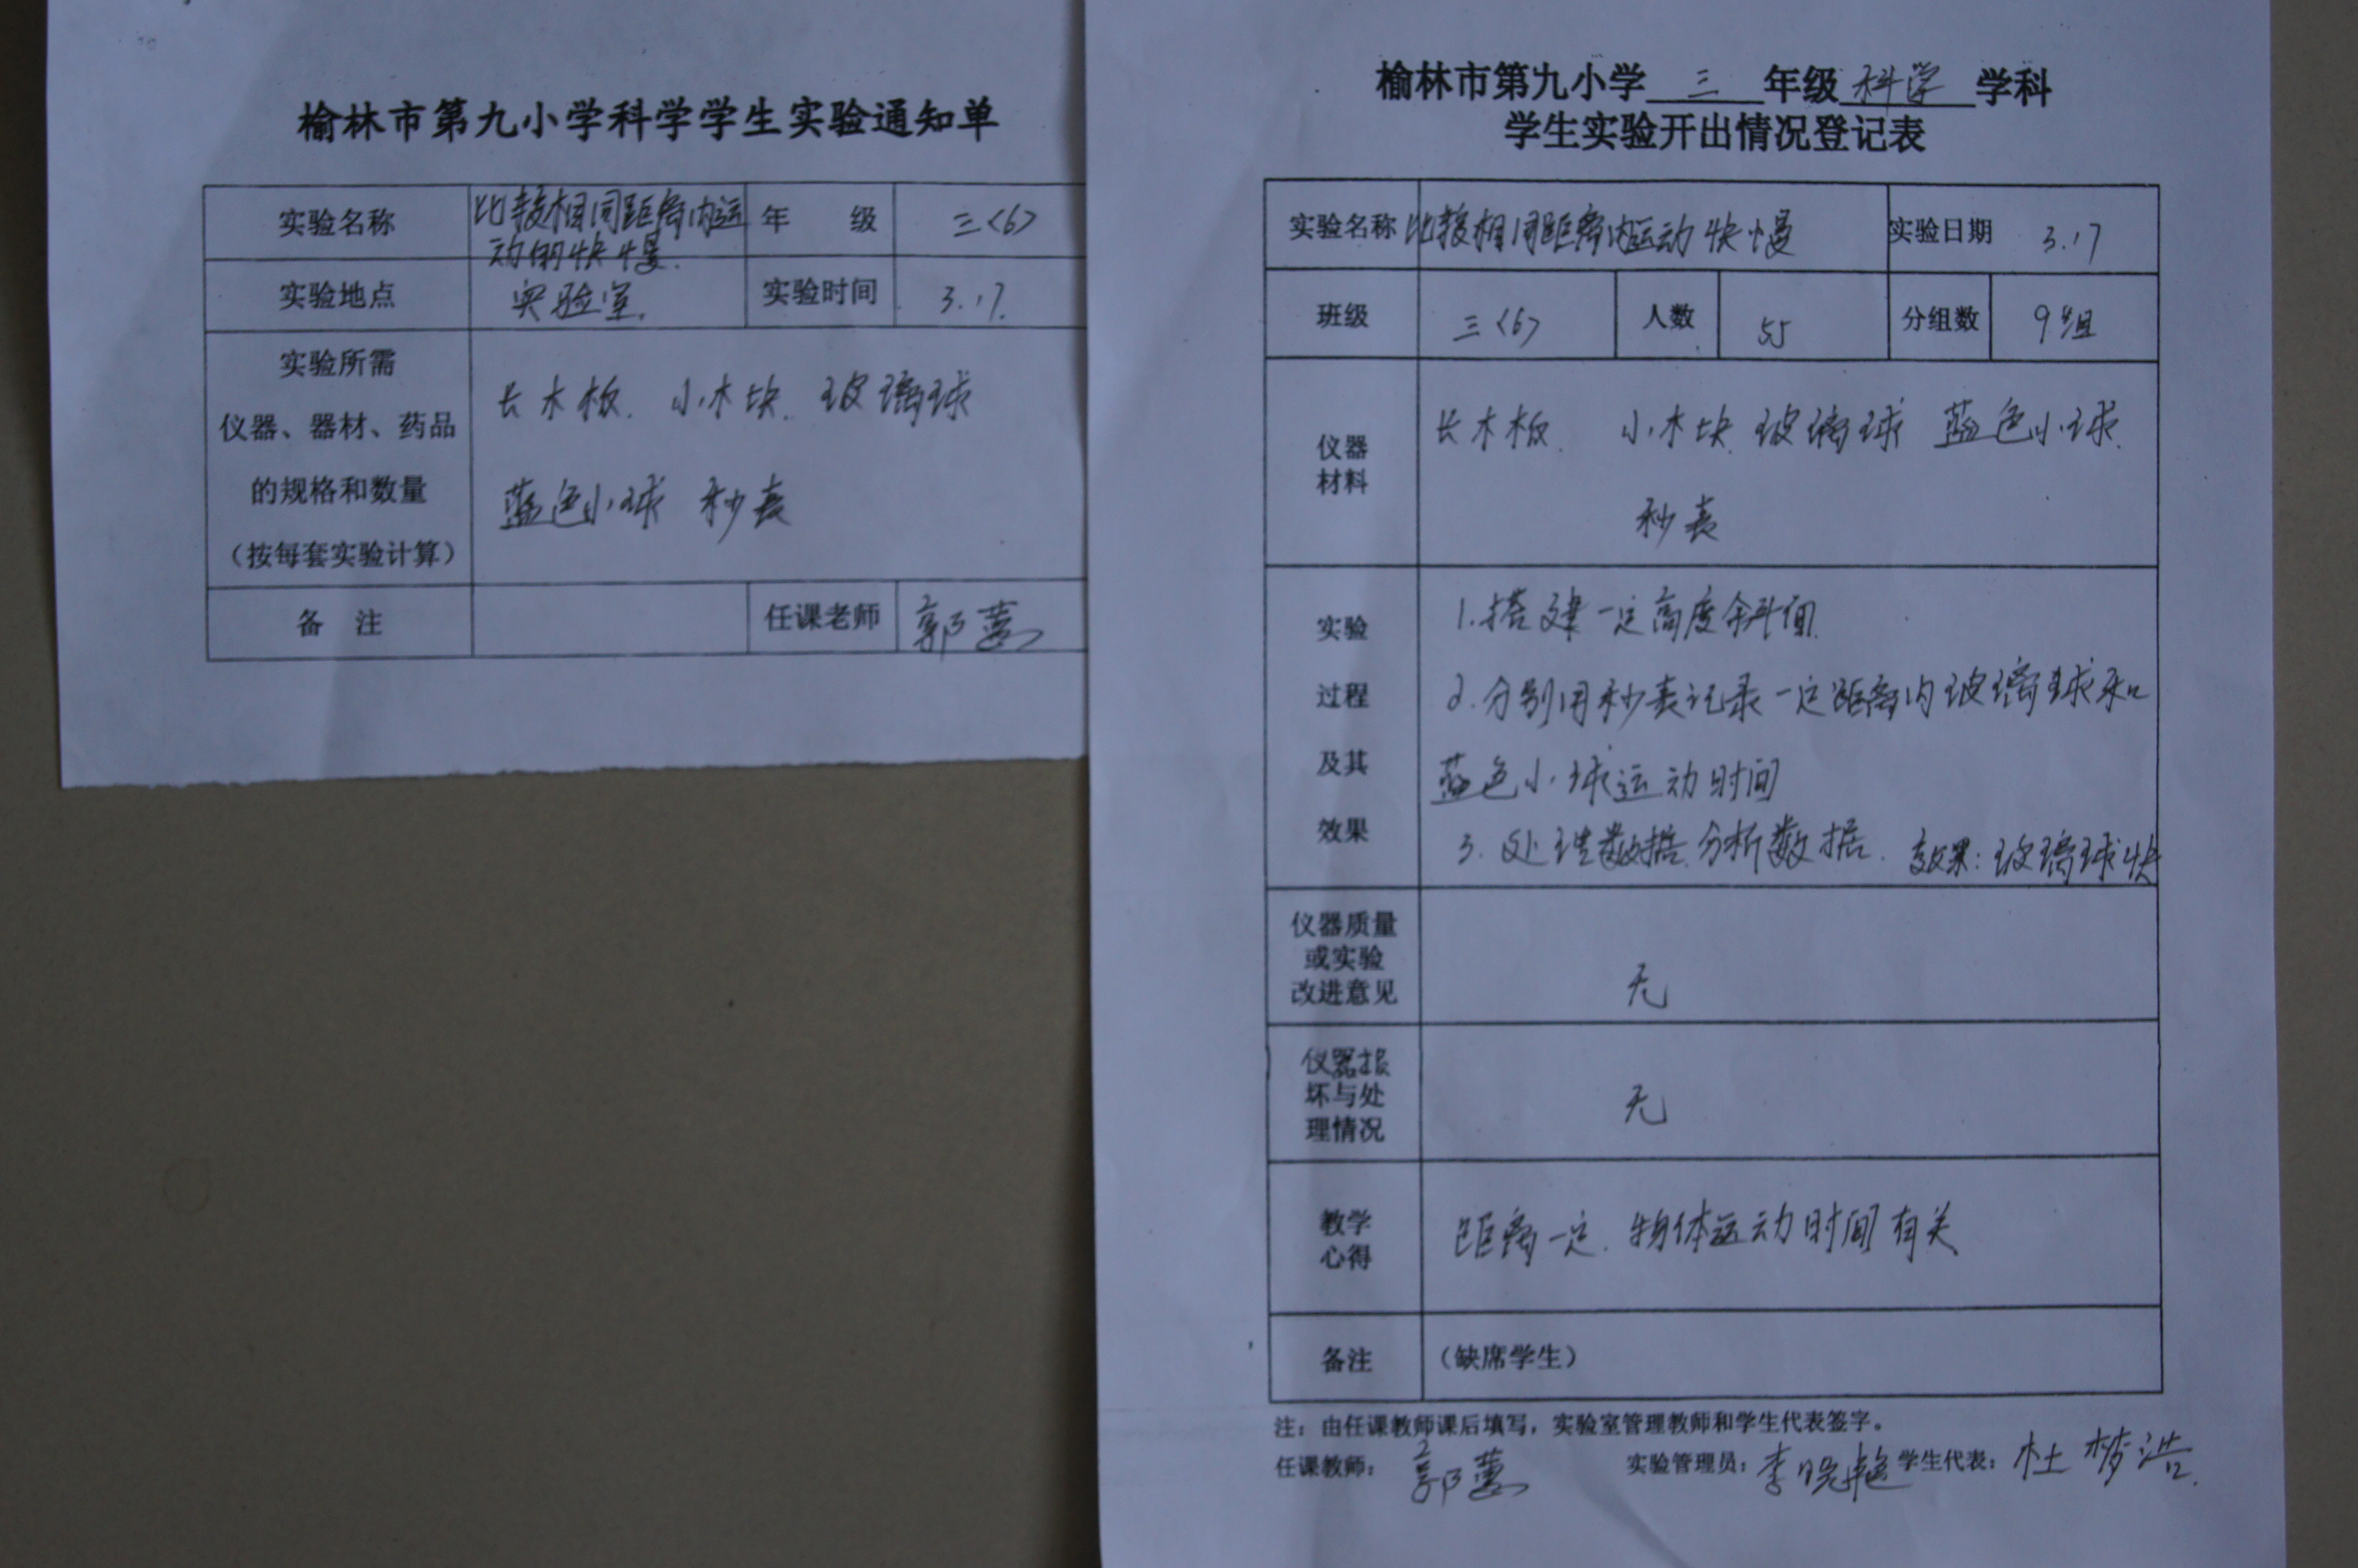 榆林市第九小学科学学生实验通知单
实验名称 比较相同距离内运 年 级 三<6>
动的快慢.
实验地点 实验室. 实验时间 3.17.
实验所需
仪器、器材、药品
的规格和数量
（按每套实验计算）
长木板. 小木块. 玻璃球
蓝色小球 秒表
备 注 任课老师 郭蕙
榆林市第九小学 三 年级 科学 学科
学生实验开出情况登记表
实验名称 比较相同距离内运动快慢 实验日期 3.17
班级 三<6> 人数 55 分组数 9组
仪器
材料
长木板. 小木块 玻璃球 蓝色小球.
秒表
实验
过程
及其
效果
1.搭建一定高度斜面.
2.分别用秒表记录一定距离内玻璃球和
蓝色小球运动时间
3.处理数据.分析数据. 效果:玻璃球快
仪器质量
或实验
改进意见
无
仪器损
坏与处
理情况
无
教学
心得
距离一定.物体运动时间有关
备注 （缺席学生）
注：由任课教师课后填写，实验室管理教师和学生代表签字。
任课教师： 郭蕙 实验管理员：李晓艳 学生代表：杜梦浩.